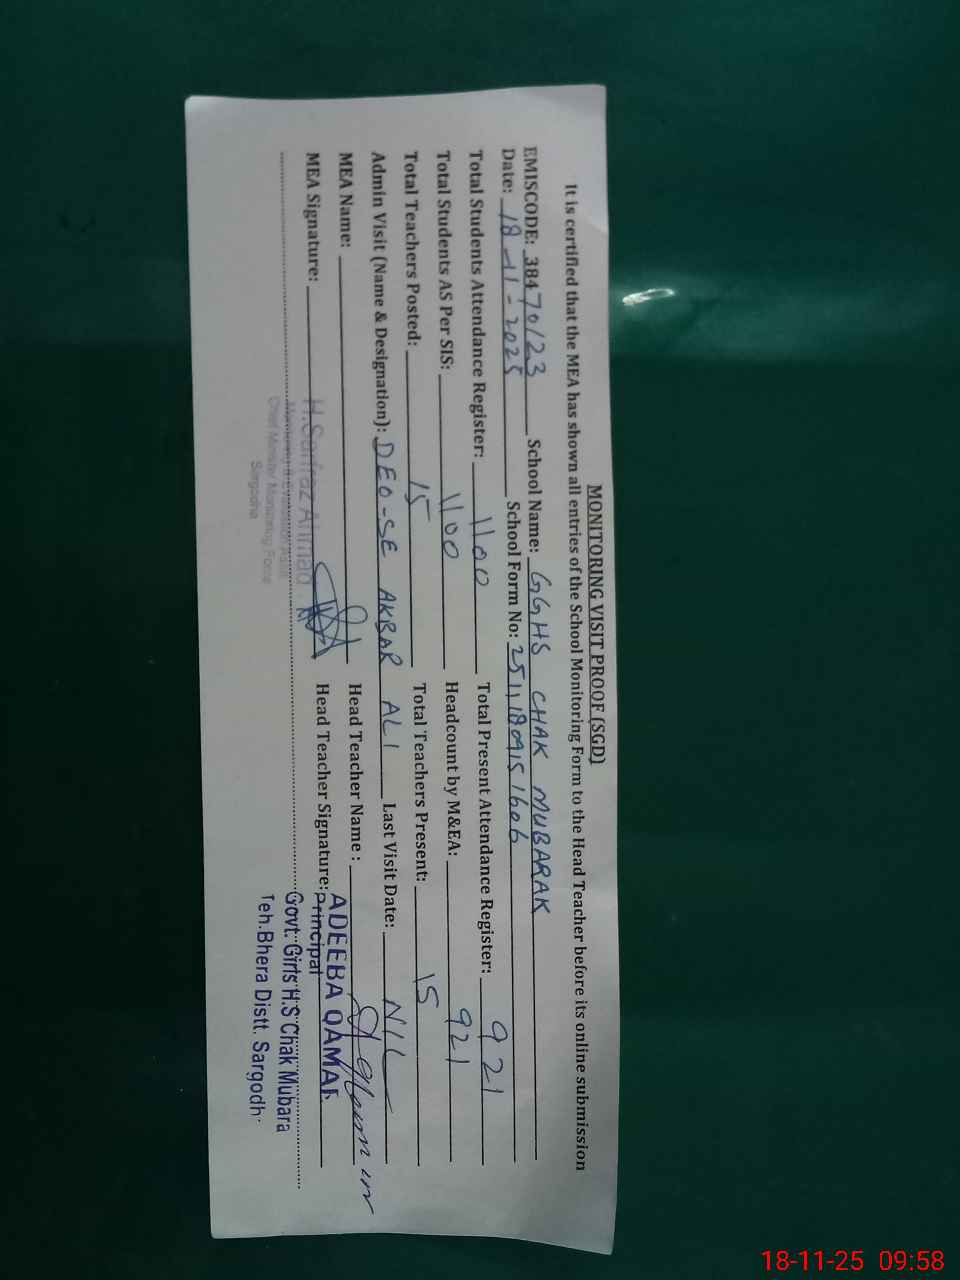 MONITORING VISIT PROOF (SGD)
It is certified that the MEA has shown all entries of the School Monitoring Form to the Head Teacher before its online submission
EMISCODE: 38470123 School Name: GGHS CHAK MUBARAK
Date: 18-11-2025 School Form No: 25111809151606
Total Students Attendance Register: 1100 Total Present Attendance Register: 921
Total Students AS Per SIS: 1100 Headcount by M&EA: 921
Total Teachers Posted: 15 Total Teachers Present: 15
Admin Visit (Name & Designation): DEO-SE AKBAR ALI Last Visit Date: NIL
MEA Name: Head Teacher Name :
MEA Signature: H.Sarfraz Ahmad Head Teacher Signature: ADEEBA QAMAR
Monitoring & Evaluation Assistt Principal
Chief Minister Monitoring Force Govt: Girls H.S Chak Mubara
Sargodha Teh.Bhera Distt. Sargodh
18-11-25 09:58